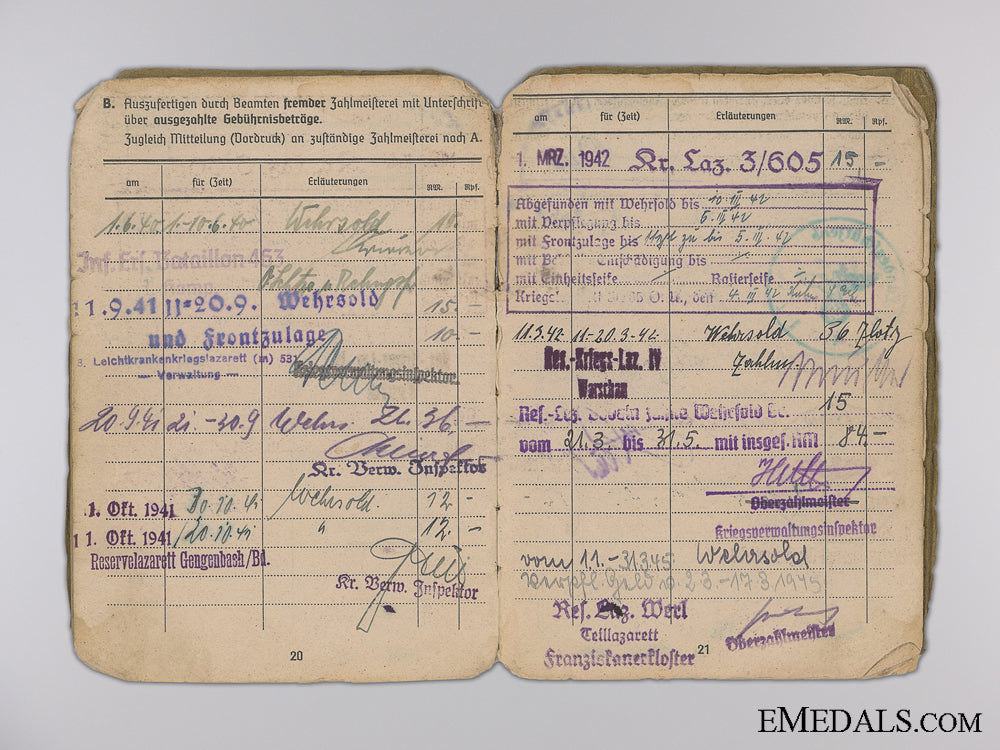 B. Auszufertigen durch Beamten fremder Zahlmeisterei mit Unterschrift
über ausgezahlte Gebührnisbeträge.
Zugleich Mitteilung (Vordruck) an zuständige Zahlmeisterei nach A.
am für (Zeit) Erläuterungen RM. Rpf.
1.6.40 1.-10.6.40 Wehrsold 10.-
Inf. Ers. Bataillon 463
1.9.41 11=20.9. Wehrsold 15.-
und Frontzulage 10.-
3. Leichtkrankenkriegslazarett (m) 531
— Verwaltung —
20.9.41 21.-30.9 Wehrs. 36.-
Kr. Verw. Inspektor
1. Okt. 1941 30.10.41 Wehrsold 12 -
1 1. Okt. 1941 /20.10.41 " 12.-
Reservelazarett Gengenbach/Bd.
Kr. Verw. Inspektor
20
am für (Zeit) Erläuterungen RM. Rpf.
1. MRZ. 1942 Kr. Laz. 3/605 15,-
Abgefunden mit Wehrsold bis 10.III.42
mit Verpflegung bis 5.III.42
mit Frontzulage bis zu bis 5.III.42
mit Be Entschädigung bis —
mit Einheitsseife — Rasierseife
Kriegsl. O.U., den 4.III.42
11.3.42 11.-20.3.42 Wehrsold 36 Zloty
Res.-Kriegs-Laz. IV
Warschau
Res.-Laz. zahlte Wehrsold 15
vom 21.3. bis 31.5. mit insges. RM 84.-
Oberzahlmeister
Kriegsverwaltungsinspektor
vom 1.1.-31.3.45 Wehrsold
Verpfl. Geld v. 2.3.-17.3.1945
Res. Laz. Werl
Teillazarett
Franziskanerkloster
Oberzahlmeister
21
EMEDALS.COM